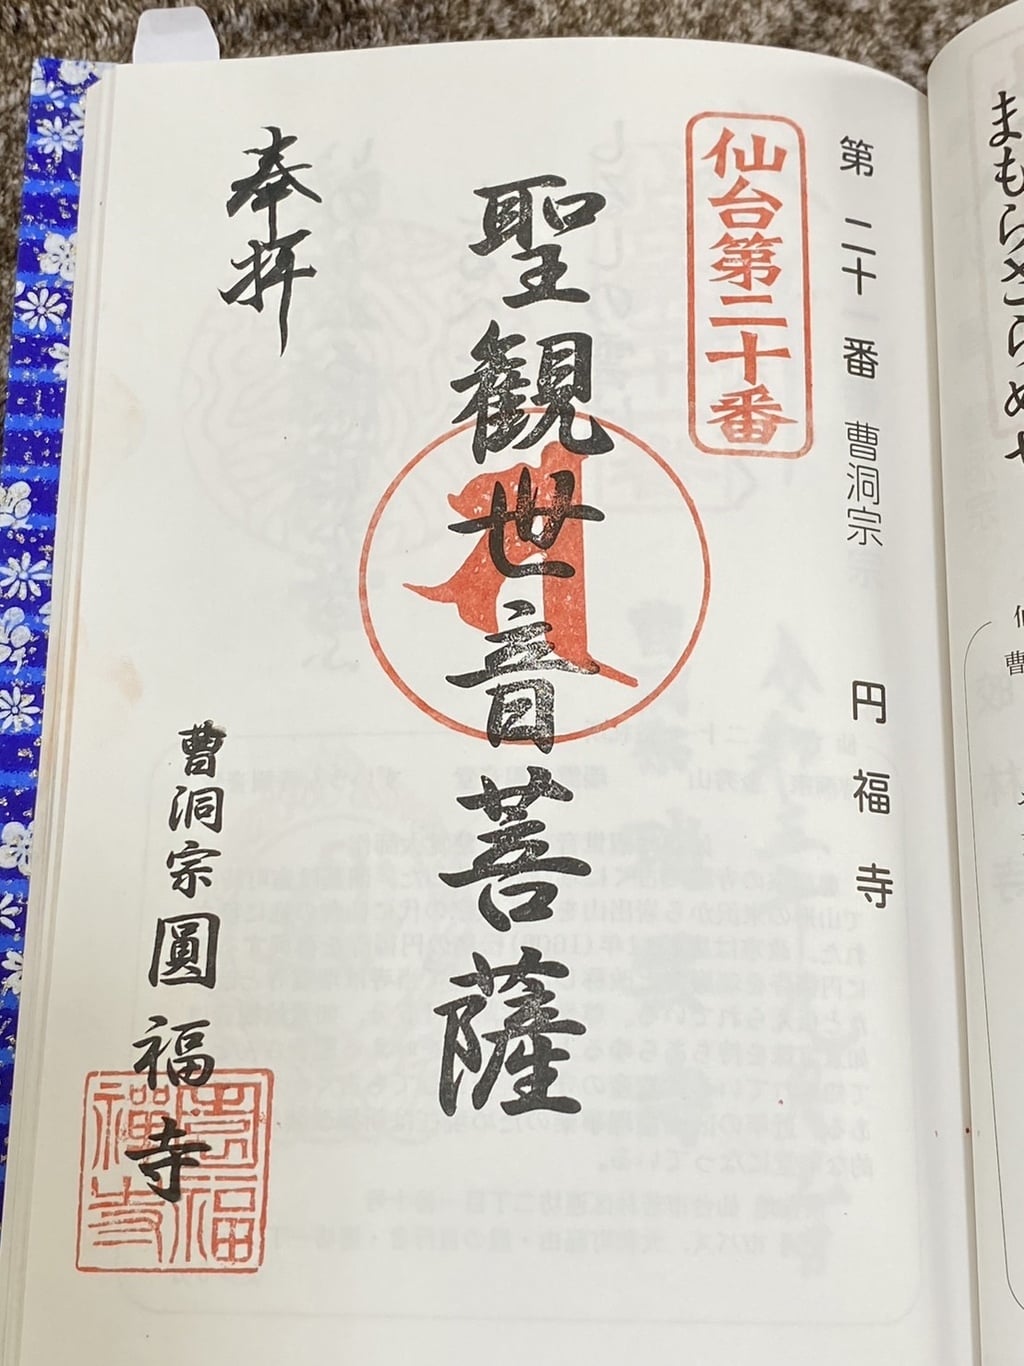 まもらさらめ
第二十番 曹洞宗 円福寺
仙台第二十番
聖観世音菩薩
奉拝
曹洞宗圓福寺
圓福
禪寺